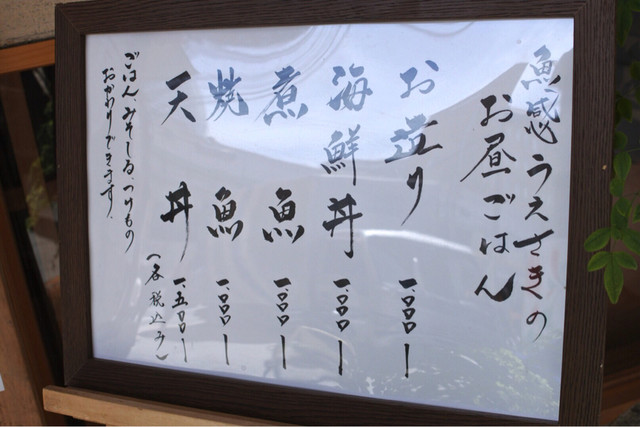 魚感うえさきの
お昼ごはん
お造り 一、〇〇〇ー
海鮮丼 一、〇〇〇ー
煮魚 一、〇〇〇ー
焼魚 一、〇〇〇ー
天丼 一、五〇〇ー
(各税込み)
ごはん、みそしる、つけもの
おかわりできます。